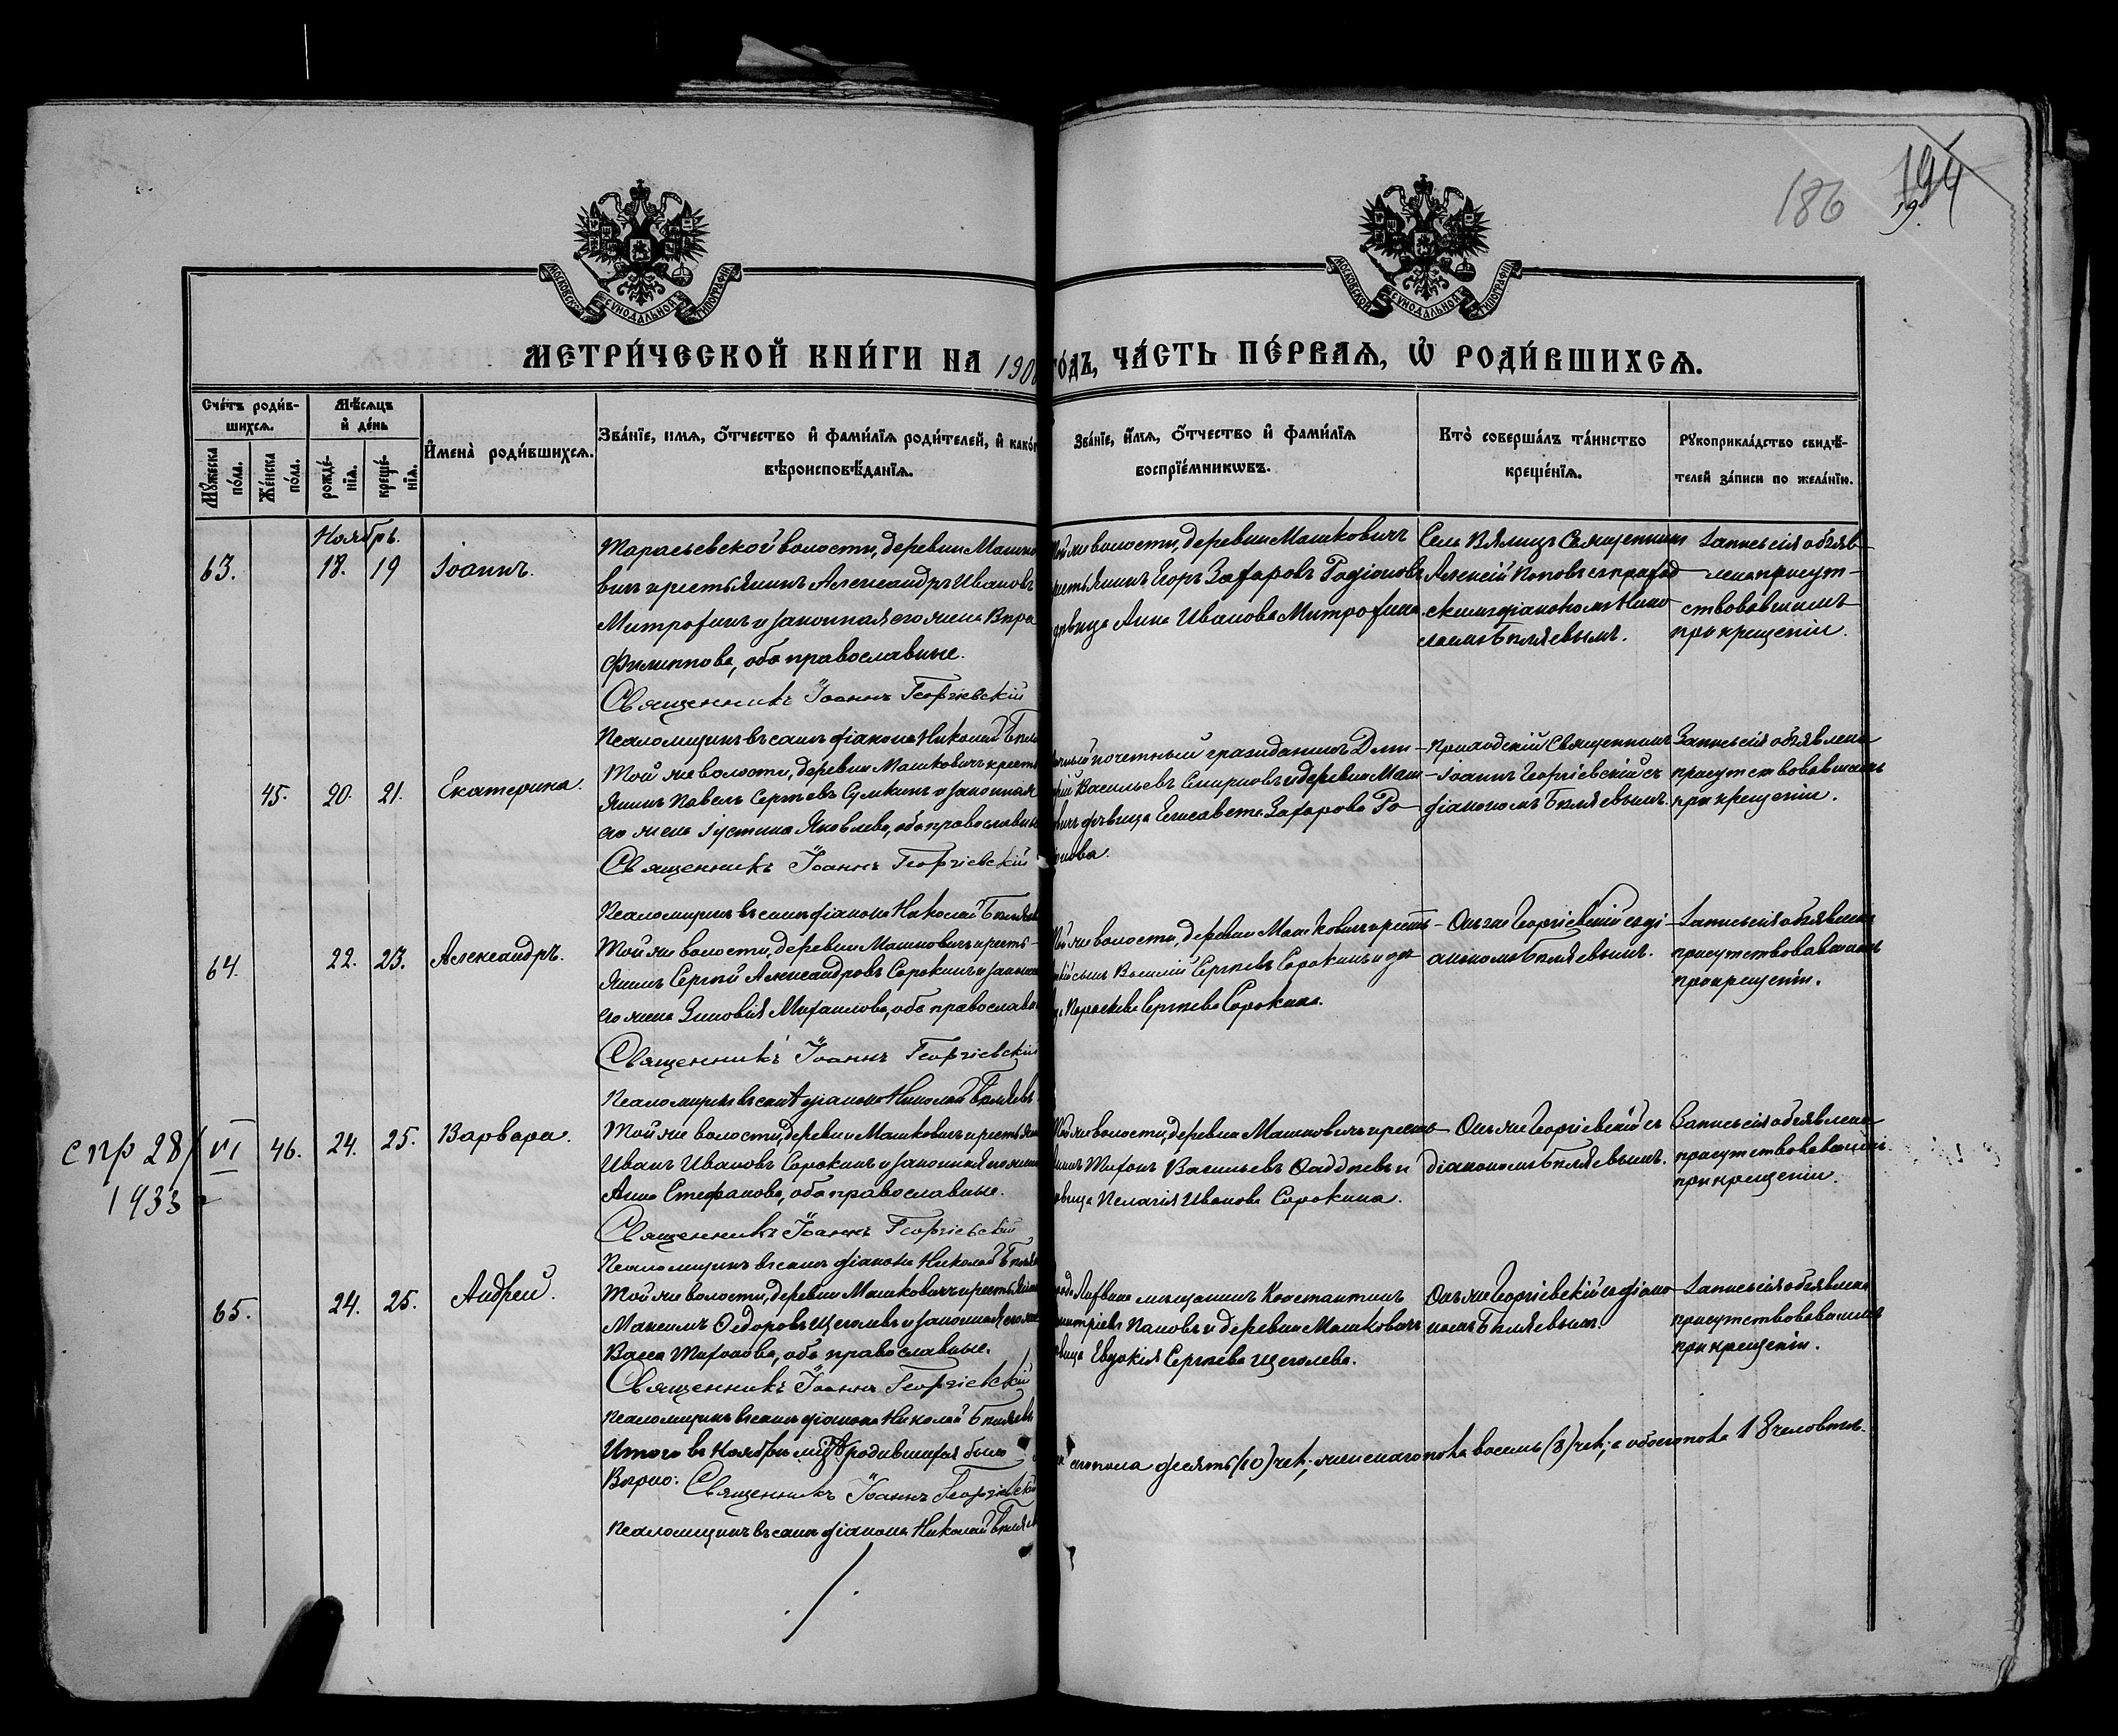 186
194
МОСКОВСКОЙ СУНОДАЛЬНОЙ ТИПОГРАФІИ
МОСКОВСКОЙ СУНОДАЛЬНОЙ ТИПОГРАФІИ
МЕТРИ́ЧЕСКОЙ КНИ́ГИ НА 190
го́дъ, ЧА́СТЬ ПЕ́РВАѦ, Ѡ҆ РОДИ́ВШИХСѦ.
Сче́тъ роди́в-
шихсѧ.
Мѣ́сѧцъ
и҆ де́нь
Мꙋ́жеска
по́ла.
Же́нска
по́ла.
рожде́-
нїѧ.
креще́-
нїѧ.
И҆мена̀ роди́вшихсѧ.
Зва́нїе, имѧ, ѻ҆́тчество и҆ фами́лїѧ роди́телей, и҆ како́г
вѣроисповѣ́данїѧ.
Зва́нїе, и҆́мѧ, ѻ҆́тчество и҆ фами́лїѧ
воспрїе́мникѡвъ.
Кто̀ соверша́лъ та́инство
креще́нїѧ.
Рꙋкоприкла́дство свидѣ́-
телей за́писи по жела́нїю.
Ноябрь.
63.
18.
19
Іоаннъ.
Тарасьевской волости, деревни Машко
вичъ крестьянинъ Александръ Ивановъ
Митрофинъ и законная его жена Вѣра
Филиппова, оба православные.
Священникъ Іоаннъ Георгіевскій
Псаломщикъ въ санѣ діакона Николай Бѣля
той же волости, деревни Машковичъ
крестьянинъ Егоръ Захаровъ Родіоновъ
дѣвица Анна Иванова Митрофина.
Села Вялицъ Священникъ
Алексій Поповъ съ приход
скимъ діакономъ Нико
лаемъ Бѣляевымъ.
Запись сія объяв-
лена присут-
ствовавшимъ
при крещеніи.
45.
20.
21.
Екатерина.
Той же волости, деревни Машковичъ кресть
янинъ Павелъ Сергѣевъ Сумкинъ и законная
его жена Іустина Яковлева, оба православные
Священникъ Іоаннъ Георгіевскій
Псаломщикъ въ санѣ діакона Николай Бѣляев
почетный гражданинъ Дми-
Васильевъ Смирновъ и деревни Маш-
дѣвица Елисавета Захарова Ро
Приходскій Священникъ
Іоаннъ Георгіевскій съ
діакономъ Бѣляевымъ.
Запись сія объявлена
присутствовавшимъ
при крещеніи.
64.
22.
23.
Александръ.
Той же волости, деревни Машковичъ кресть-
янинъ Сергѣй Александровъ Сорокинъ и законная
его жена Зиновія Михаилова, оба православные
Священникъ Іоаннъ Георгіевскій
Псаломщикъ въ санѣ діакона Николай Бѣляевъ
той же волости, деревни Машковичъ крестьян-
скій сынъ Василій Сергѣевъ Сорокинъ и дѣ
Параскева Сергѣева Сорокина.
Онъ же Георгіевскій съ ді-
акономъ Бѣляевымъ.
Запись сія объявлена
присутствовавшимъ
при крещеніи.
с пр 28/VI
1933 г
46.
24.
25.
Варвара.
Той же волости, деревни Машковичъ крестьянинъ
Иванъ Ивановъ Сорокинъ и законная его жена
Анна Стефанова, оба православные.
Священникъ Іоаннъ Георгіевскій
Псаломщикъ въ санѣ діакона Николай Бѣляев
той же волости, деревни Машковичъ кресть
янинъ Тихонъ Васильевъ Фаддѣевъ и
дѣвица Пелагія Иванова Сорокина.
Онъ же Георгіевскій съ
діакономъ Бѣляевымъ.
Запись сія объявлена
присутствовавшимъ
при крещеніи.
65.
24.
25.
Андрей.
Той же волости, деревни Машковичъ крестьянинъ
Максимъ Ѳедоровъ Щеголевъ и законная его жена
Васса Тихонова, оба православные.
Священникъ Іоаннъ Георгіевскій
Псаломщикъ въ санѣ діакона Николай Бѣляевъ
города Лихвина мѣщанинъ Константинъ
Дмитріевъ Поповъ и деревни Машковичъ
дѣвица Евдокія Сергѣева Щеголева.
Онъ же Георгіевскій съ діако
номъ Бѣляевымъ.
Запись сія объявлена
присутствовавшимъ
при крещеніи.
Итого въ Ноябрѣ мцѣ родившихся было
мужескаго пола десять (10) чел., женскаго пола восемь (8) чел., а обоего пола 18 человѣкъ.
Вѣрно: Священникъ Іоаннъ Георгіевскій
Псаломщикъ въ санѣ діакона Николай Бѣляев